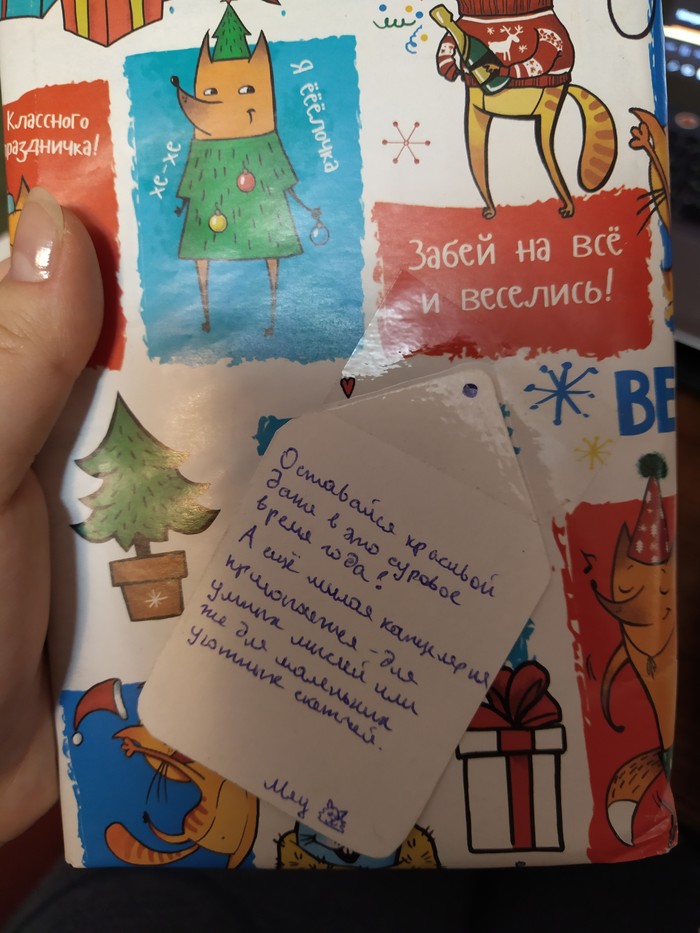 Классного
праздничка!
хе-хе
Я ёёёлочка
Забей на всё
и веселись!
ВЕ
Оставайся красивой
даже в это суровое
время года!
А ещё милая канцелярия
прилагается - для
умных мыслей или
же для маленьких
уютных статей.
Мяу